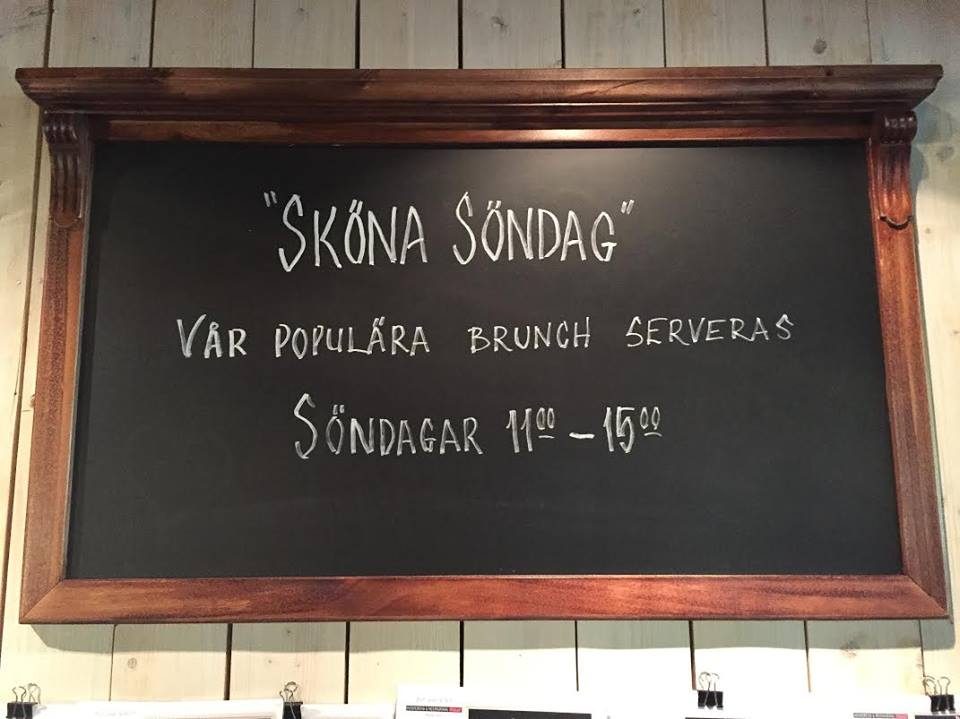 "SKÖNA SÖNDAG"
VÅR POPULÄRA BRUNCH SERVERAS
SÖNDAGAR 11⁰⁰ – 15⁰⁰